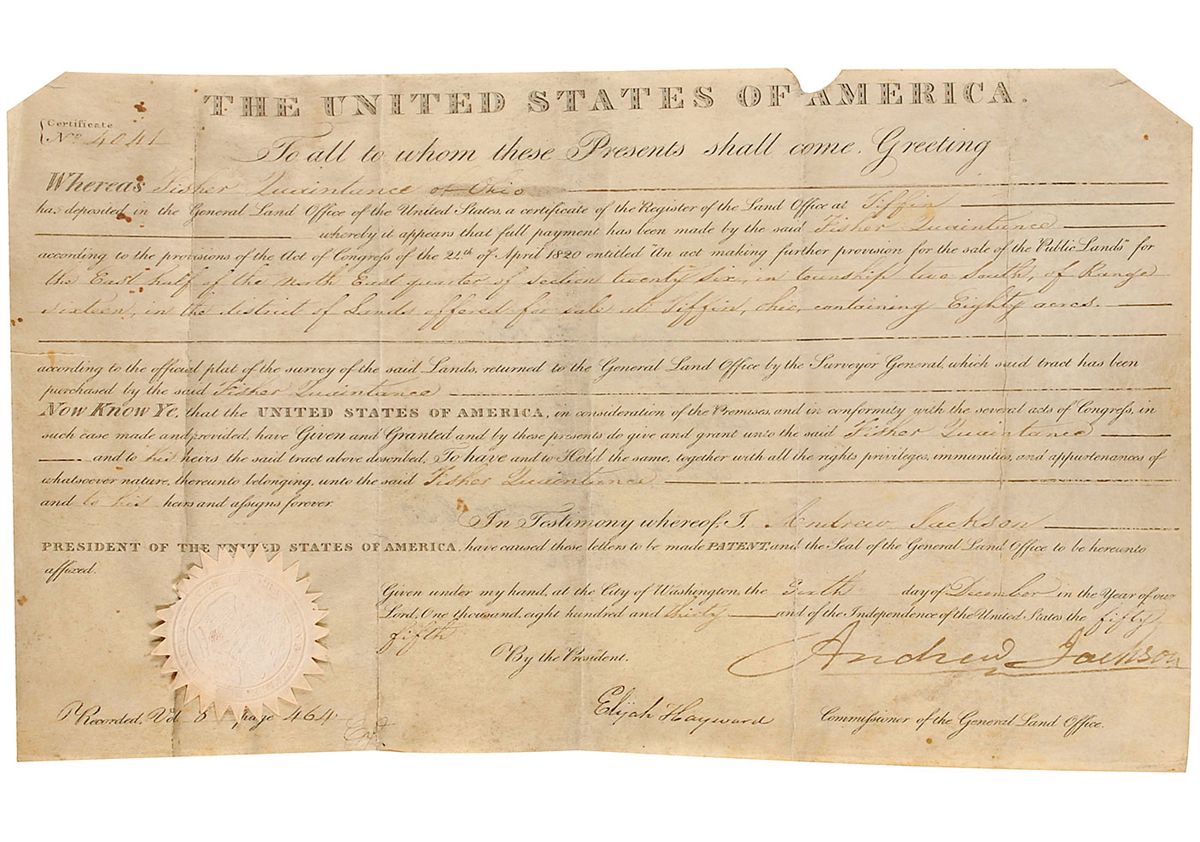 THE UNITED STATES OF AMERICA.
Certificate
No. 4041
To all to whom these Presents shall come, Greeting
Whereas Fisher Quaintance of Ohio
has deposited in the General Land Office of the United States, a certificate of the Register of the Land Office at Tiffin
whereby it appears that full payment has been made by the said Fisher Quaintance
according to the provisions of the Act of Congress of the 24th of April 1820 entitled "An act making further provision for the sale of the Public Lands" for
the East half of the North East quarter of section twenty six, in township two South, of Range
sixteen, in the district of Lands offered for sale at Tiffin, Ohio, containing Eighty acres.
according to the official plat of the survey of the said Lands, returned to the General Land Office by the Surveyor General, which said tract has been
purchased by the said Fisher Quaintance
Now Know Ye, that the UNITED STATES OF AMERICA, in consideration of the Premises, and in conformity with the several acts of Congress, in
such case made and provided, have Given and Granted and by these presents do give and grant unto the said Fisher Quaintance
and to his heirs the said tract above described, To have and to Hold the same, together with all the rights privileges, immunities, and appurtenances of
whatsoever nature, thereunto belonging, unto the said Fisher Quaintance
and to his heirs and assigns forever
In Testimony whereof, I, Andrew Jackson
PRESIDENT OF THE UNITED STATES OF AMERICA, have caused these letters to be made PATENT, and the Seal of the General Land Office to be hereunto
affixed.
Given under my hand, at the City of Washington, the Sixth day of December in the Year of our
Lord, One thousand, eight hundred and thirty and of the Independence of the United States the fifty
fifth
By the President. Andrew Jackson
Recorded, Vol 8 page 464 Elijah Hayward Commissioner of the General Land Office.